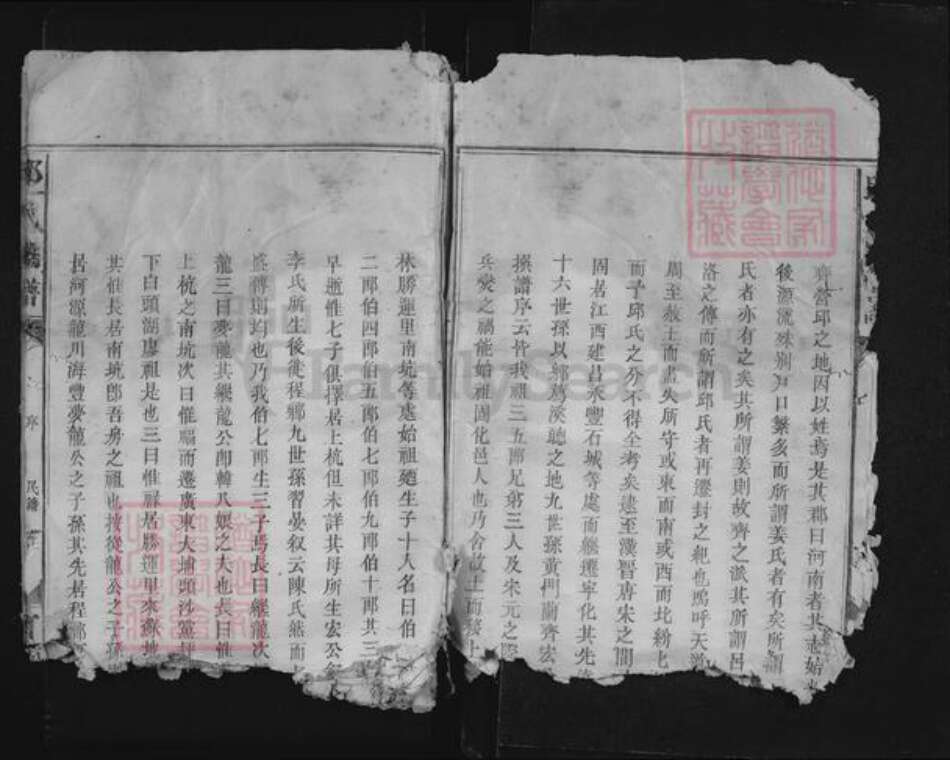 齊營邱之地因以姓焉是其郡曰河南者其志始
後源流殊別戶口繁多而所謂姜氏者有矣所謂
氏者亦有之矣其所謂姜則故齊之派其所謂呂
洛之傳而所謂邱氏者再遷封之杞也嗚呼天
周至赧王而盡失所守或東而南或西而北紛
而于邱氏之分不得全考矣逮至漢晉唐宋之間
因居江西建昌永豐石城等處而繼遷寧化其先
十六世孫以鄉為溪聽之地九世孫黃門蘭齊宏
撰譜序云皆我祖三五郎兄第三人及宋元之際
兵燹之禍能始祖固化邑人也乃舍故土而移上
林勝運里南坑等處始祖廼生子十人名曰伯
二郎伯四郎伯五郎伯七郎伯九郎伯十郎其三
早逝惟七子俱擇居上杭但未詳其母所生宏公
李氏所生後徙程鄉九世孫習晏叙云陳氏然而
盛傳則均也乃我伯七郎生三子焉長曰繼龍次
龍三曰夢龍其繼龍公即韓八娘之夫也長曰惟
上杭之南坑次曰惟福而遷廣東大埔頭沙黨坪
下白頭湖廖祖是也三曰惟祿居勝運里來蘇地
其惟長居南坑即吾房之祖也據從龍公之子孫
居河源龍川海豐夢龍公之子孫其先居程鄉
氏譜
序
民譜